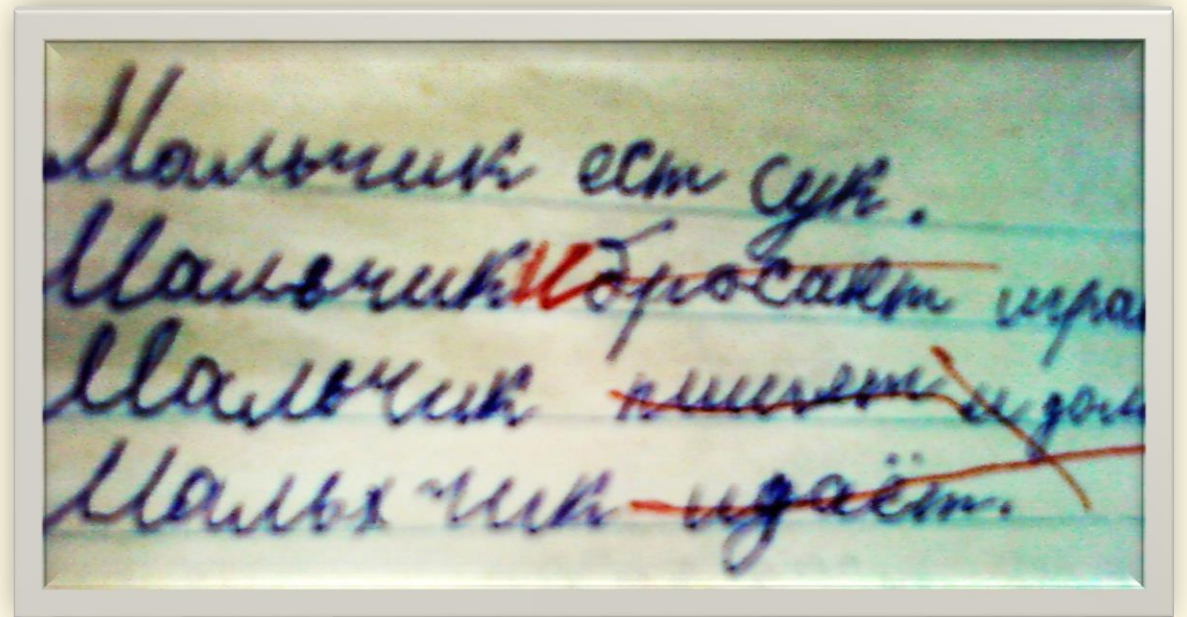 Мальчик ест сук.
Мальчик и бросает игра
Мальчик и дом
Мальх чик идаёт.